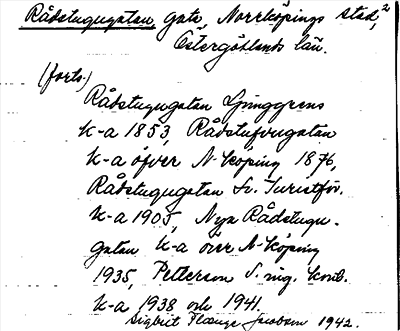 Rådstugugatan, gata, Norrköpings stad, 2
Östergötlands län.
(forts.)
Rådstugugatan Ljunggrens
k-a 1853, Rådstufvugatan
k-a öfver N-köping 1876,
Rådstugugatan Sv. Turistför.
k-a 1905, Nya Rådstugu-
gatan k-a över N-köping
1935, Petterson S. ing. komb.
k-a 1938 och 1941.
Sigbrit Plænge Jacobson 1942.